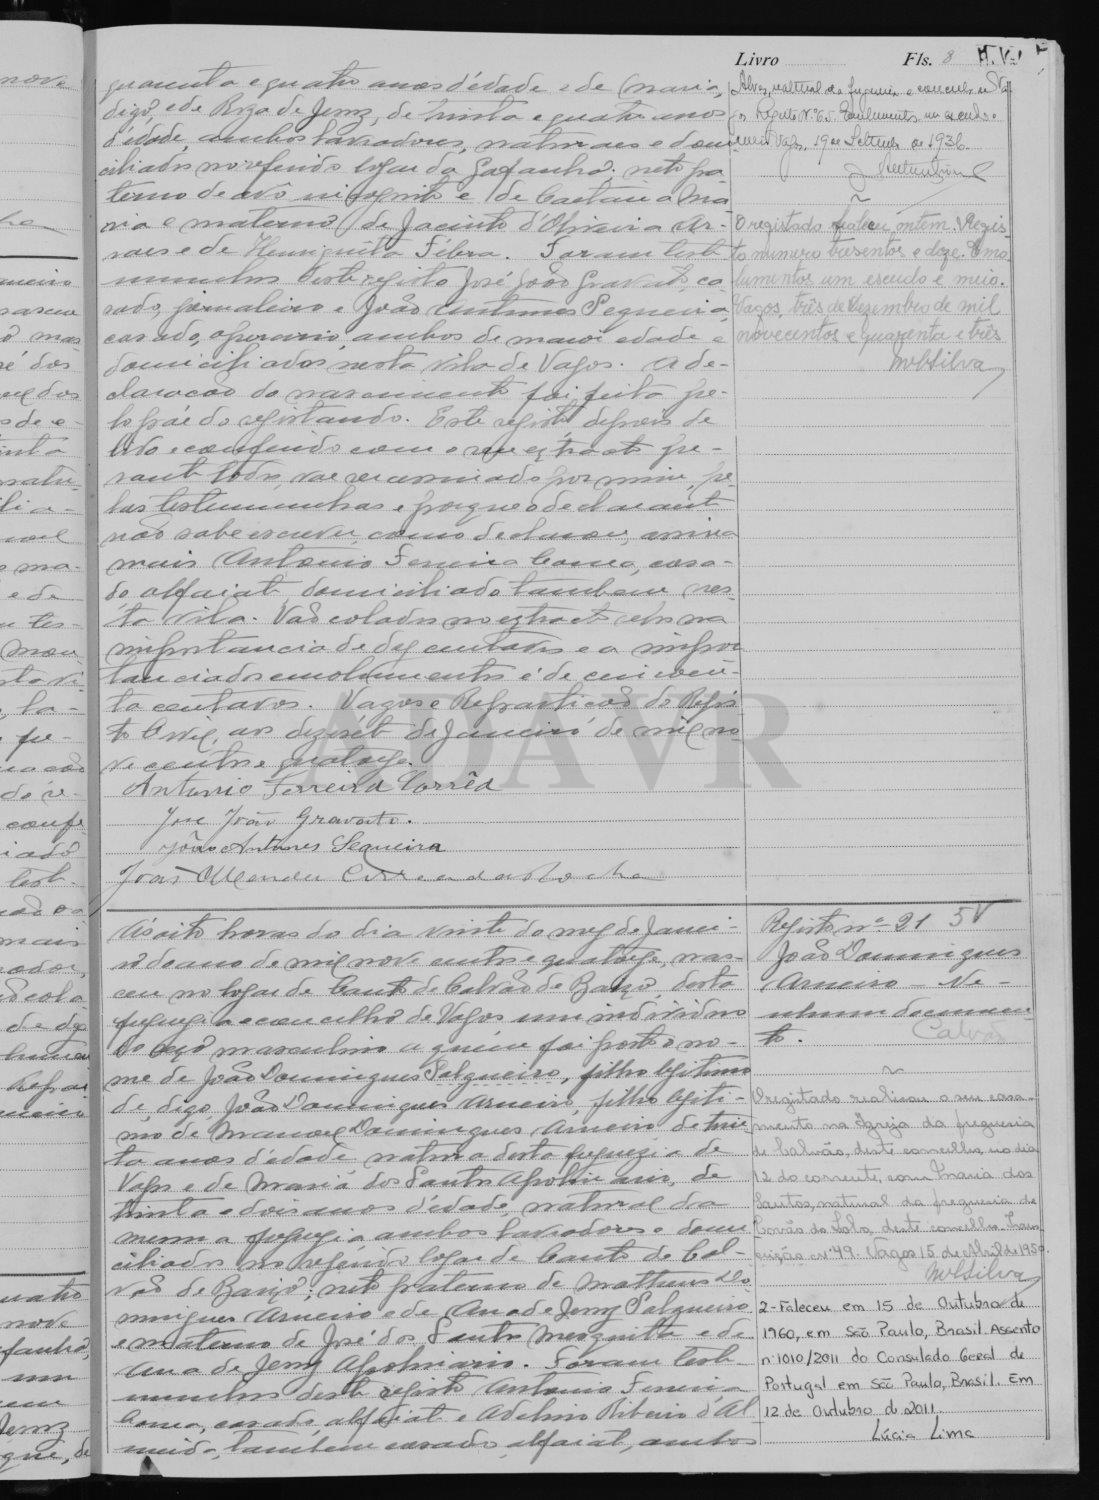 Livro Fls. 8
quarenta e quatro anos d'edade e de Maria,
digo, e de Roza de Jesus, de trinta e quatro anos
d'edade, ambos lavradores, naturaes e domi
ciliados no referido logar da Gafanha; neto pa
terno de avô incognito e de Caetana Ma
ria e materno de Jacinto d'Oliveira Ar-
raes e de Henriqueta Febra. Foram teste
munhas deste registo José João Gravato, ca
sado, jornaleiro e João Antunes Sequeira,
casado, operario, ambos de maior edade e
domiciliados nesta vila de Vagos. A de-
claração do nascimento foi feita pe-
lo pãe do registando. Este registo depois de
lido e conferido com o seu extracto pe-
rante todos, vae ser assinado por mim, pe-
las testemunhas e porque o declarante
não sabe escrever, como declarou, assina
mais Antonio Ferreira Correa, casa-
do, alfaiate, domiciliado tambem nes-
ta vila. Vão colados no extracto selos na
importancia de dez centavos e a impor
tancia dos emolumentos é de cincoen-
ta centavos. Vagos e Repartição do Regis-
to Civil, aos dezesete de Janeiro de mil no-
ve centos e quatorze.
Antonio Ferreira Corrêa
José João Gravato.
João Antunes Sequeira
João Mendes Correa da Rocha
Alves, natural da freguesia e concelho de
Registo Nº 65. Emolumentos um escudo e
Vagos, 19 de Setembro de 1936.
O registado faleceu ontem. Regis-
to numero tresentos e doze. Emo-
lumentos um escudo e meio.
Vagos, três de Dezembro de mil
novecentos e quarenta e três
MSilva
ADAVR
Ás oito horas do dia vinte do mez de Janei-
ro do ano de mil nove centos e quatorze, nas-
ceu no logar de Canto de Calvão de Baixo, desta
freguezia e concelho de Vagos um individuo
do sexo masculino a quem foi posto o no-
me de João Domingues Salgueiro, filho legitimo
de, digo, João Domingues Arneiro, filho legiti-
mo de Manoel Domingues Arneiro de trin
ta anos d'edade natural desta freguezia de
Vagos e de Maria dos Santos Apolinario, de
trinta e dois anos d'edade, natural da
mesma freguezia ambos lavradores e domi
ciliados no referido logar de Canto de Cal-
vão de Baixo; neto paterno de Matheus Do
mingues Arneiro e de Ana de Jesus Salgueiro
e materno de José dos Santos Mesquita e de
Ana de Jesus Apolinario. Foram teste-
munhas deste registo Antonio Ferreira
Correa, casado, alfaiate e Adelino Ribeiro d'Al
meida, tambem casado, alfaiate, ambos
Registo nº 21 5V
João Domingues
Arneiro — Ne-
nhum documen-
to.
Calvão
O registado realizou o seu casa-
mento na Igreja da freguesia
de Calvão, deste concelho, no dia
12 do corrente, com Maria dos
Santos, natural da freguesia de
Covão do Lobo, deste concelho. Trans
crição nº 49. Vagos 15 de Abril de 1950.
MSilva
2-Faleceu em 15 de Outubro de
1960, em São Paulo, Brasil. Assento
nº 1010/2011 do Consulado Geral de
Portugal em São Paulo, Brasil. Em
12 de Outubro de 2011.
Lúcia Lima